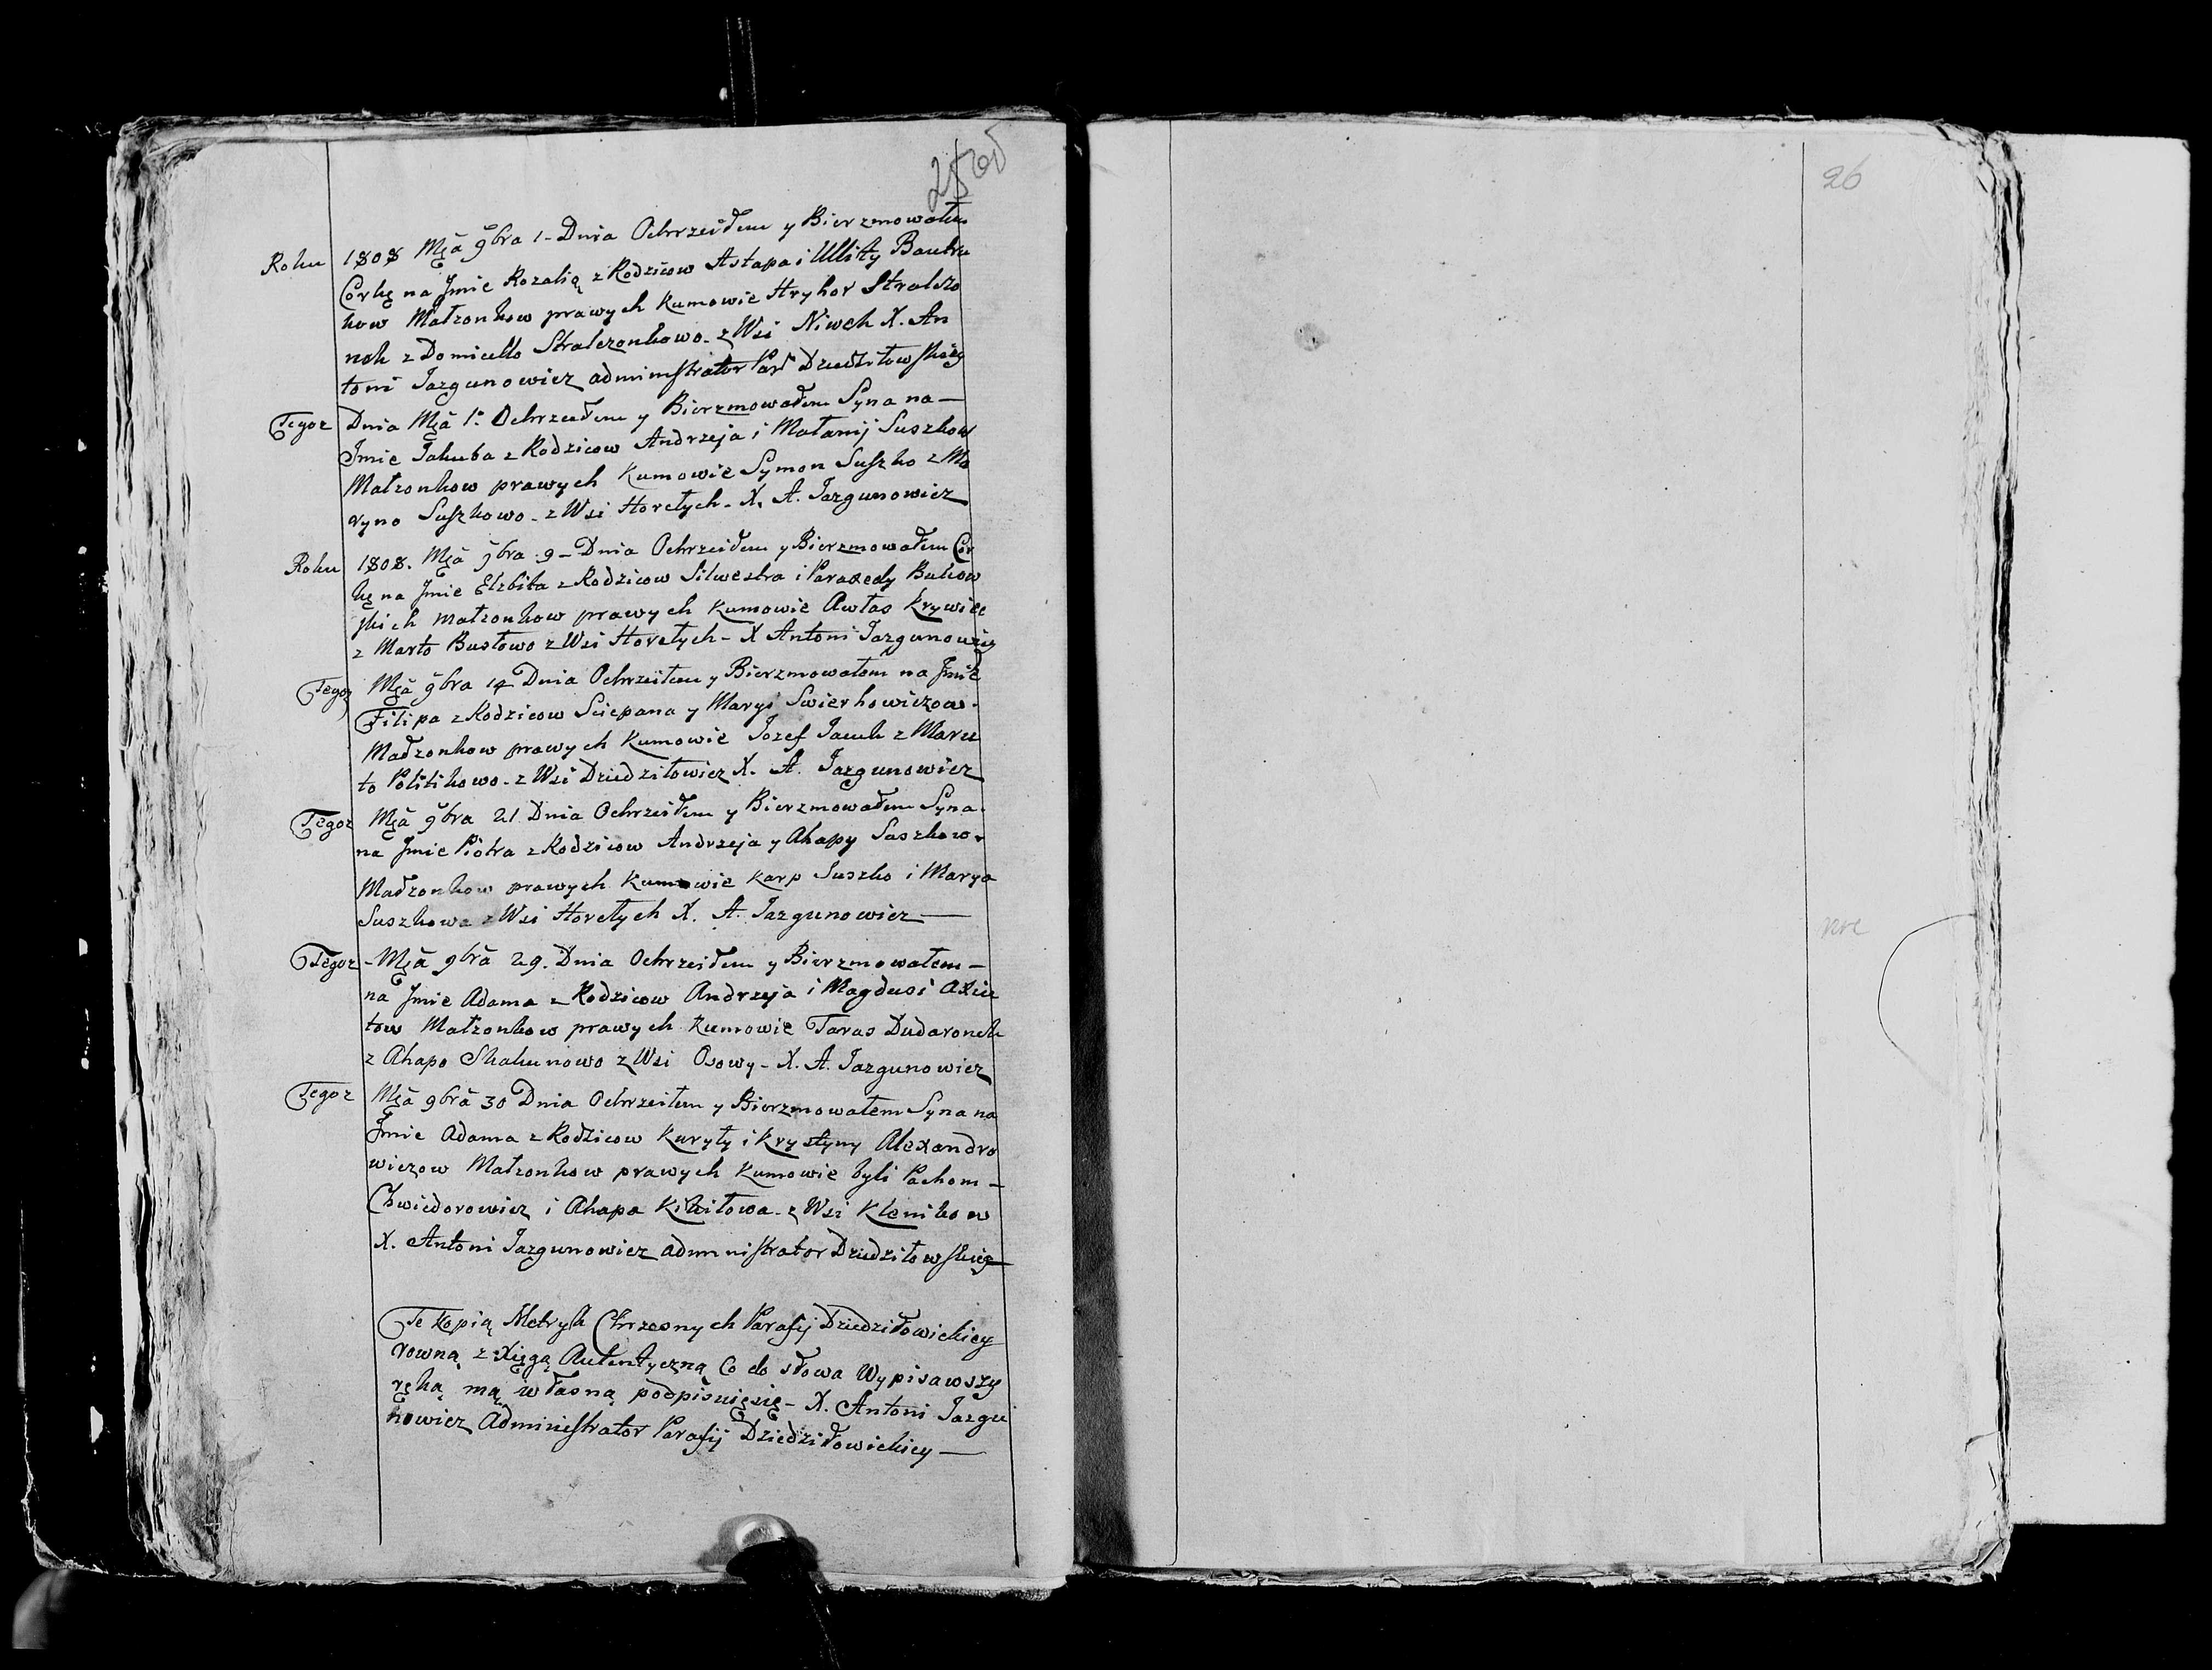 25 об
Roku 1808 Mca 9bra 1 - Dnia Ochrzciłem y Bierzmowałem
Corkę na Jmie Rozalią z Rodzicow Astapa i Ullity Bautru
kow Małzonkow prawych Kumowie Hryhor Stralczo
nek z Domicello Stralczonkowo - z Wsi Niwek X. An
toni Jazgunowicz administrator Par Dziedziłowskiey
Tegoz Dnia Mca 1. Ochrzciłem y Bierzmowałem Syna na —
Jmie Jakuba z Rodzicow Andrzeja i Małanij Suszkow
Małzonkow prawych Kumowie Symon Suszko z Ma
ryno Suszkowo - z Wsi Horełych - X. A. Jazgunowicz
Roku 1808. Mca 9bra 9 - Dnia Ochrzciłem y Bierzmowałem Cor
kę na Jmie Elzbita z Rodzicow Silwestra i Paraxedy Bukow
skich małzonkow prawych Kumowie Awłas Krywiec
z Marto Busłowo z Wsi Horełych - X Antoni Jazgunowicz
Tegoz Mca 9bra 14 Dnia Ochrzciłem y Bierzmowałem na Jmie
Filipa z Rodzicow Sciepana y Maryi Swierkowiczow -
Małzonkow prawych Kumowie Jozef Jacuk z Maru
to Politikowo - z Wsi Dziedziłowicz X. A. Jazgunowicz
Tegoz Mca 9bra 21 Dnia Ochrzciłem y Bierzmowałem Syna -
na Jmie Piotra z Rodzicow Andrzeja y Ahapy Suszkow -
Małzonkow prawych Kumowie Karp Suszko i Marya
Suszkowa z Wsi Horełych X. A. Jazgunowicz —
Tegoz - Mca 9bra 29. Dnia Ochrzciłem y Bierzmowałem —
na Jmie Adama z Rodzicow Andrzeja i Magdusi Axiu
tow Małzonkow prawych Kumowie Taras Dudaronek
z Ahapo Skakunowo z Wsi Osowy - X. A. Jazgunowicz
Tegoz Mca 9bra 30 Dnia Ochrzciłem y Bierzmowałem Syna na
Jmie Adama z Rodzicow Kuryły i Krystyny Alexandro
wiczow Małzonkow prawych Kumowie byli Pachom —
Chwiedorowicz i Ahapa Kikiłowa - z Wsi Klenikow
X. Antoni Jazgunowicz administrator Dziedziłowskiey —
Te Kopią Metryk Chrzesnych Parafij Dziedziłowickiey
rowną z Xięgą Autentyczną Co do słowa Wypisawszy
ręką mą własną podpisuięsię - X. Antoni Jazgu
nowicz Administrator Parafij Dziedziłowickiey —
26